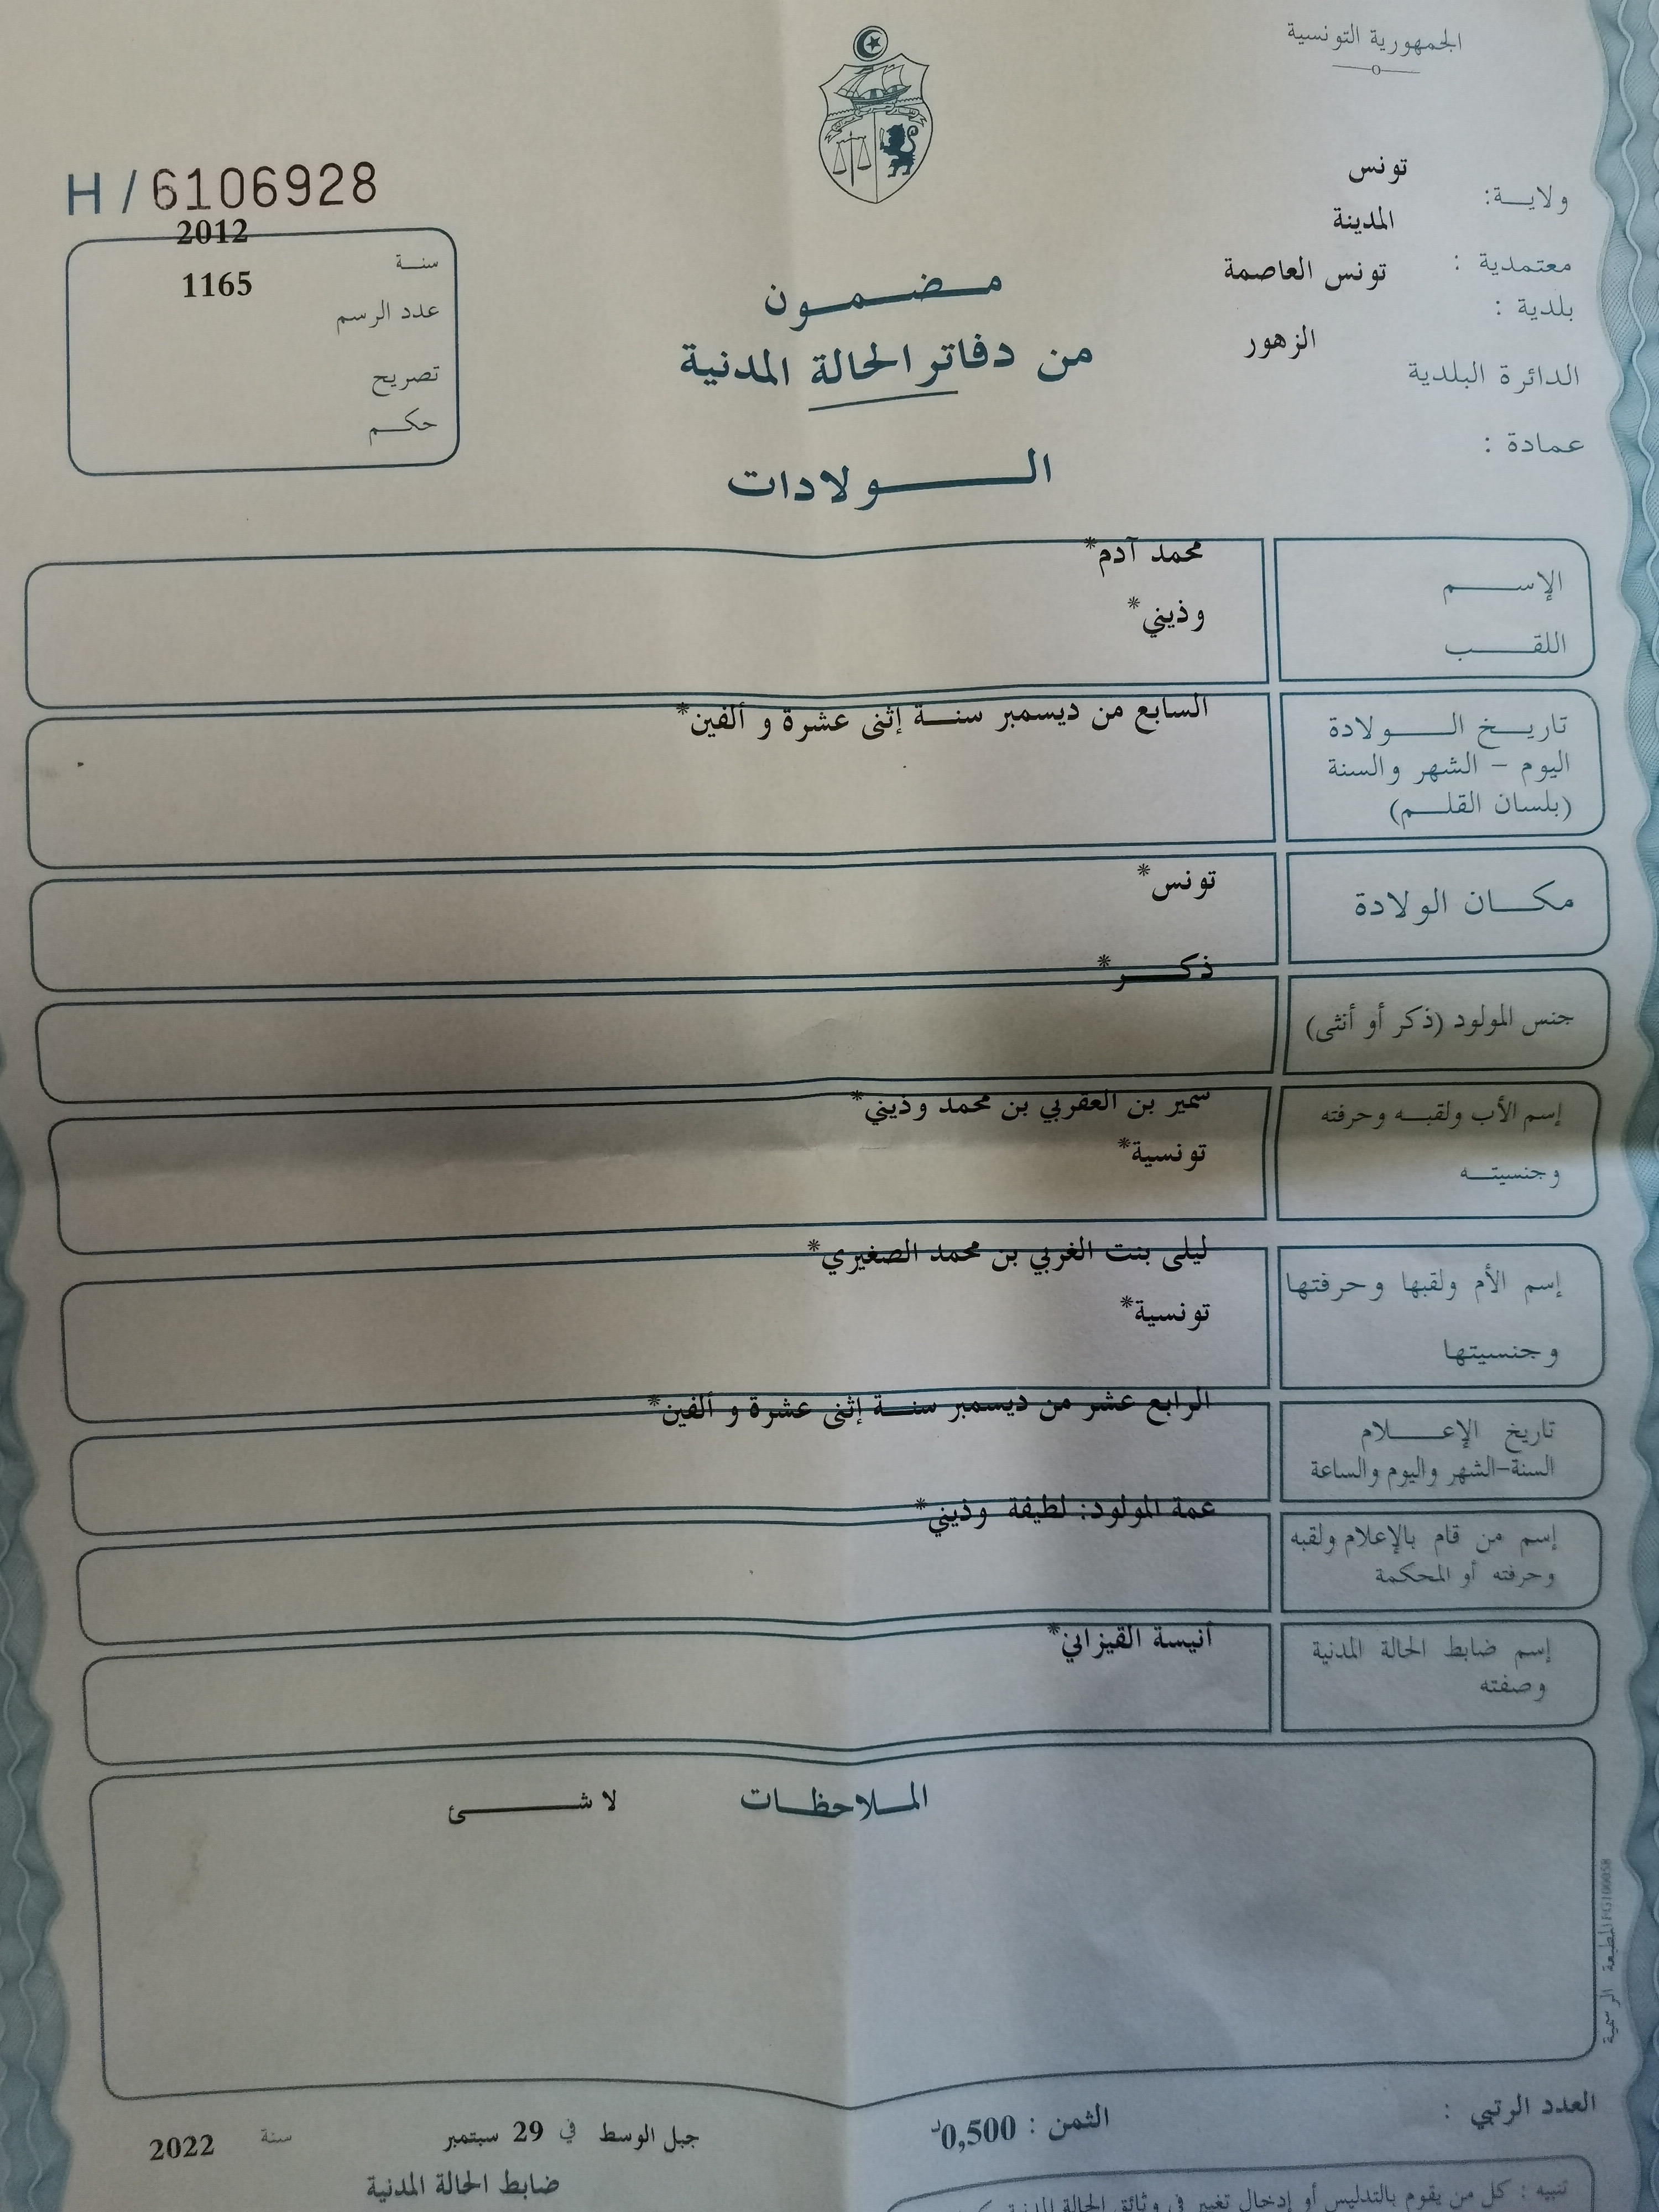 الجمهورية التونسية
ولايـــة: تونس
معتمدية : المدينة
بلدية : تونس العاصمة
الدائرة البلدية الزهور
عمادة :
H / 6106928
سنـــة 2012
عدد الرسم 1165
تصريح
حكـــم
مـــضـــمـــون
من دفاتر الحالة المدنية
الـــولادات
الإســـم محمد آدم*
اللقـــب وذيني*
تاريـــخ الـــولادة السابع من ديسمبر سنـــة إثنى عشرة و ألفين*
اليوم - الشهر والسنة
(بلسان القلـــم)
مكـــان الولادة تونس*
جنس المولود (ذكر أو أنثى) ذكـــر*
إسم الأب ولقبـــه وحرفته سمير بن العقربي بن محمد وذيني*
وجنسيتـــه تونسية*
إسم الأم ولقبها وحرفتها ليلى بنت الغربي بن محمد الصغيري*
وجنسيتها تونسية*
تاريخ الإعـــلام الرابع عشر من ديسمبر سنـــة إثنى عشرة و ألفين*
السنة-الشهر واليوم والساعة
إسم من قام بالإعلام ولقبه عمة المولود: لطيفة وذيني*
وحرفته أو المحكمة
إسم ضابط الحالة المدنية أنيسة القيزاني*
وصفته
المـــلاحظـــات لا شـــئ
المطبعة الرسمية
العدد الرتبي :
الثمن : 0,500د
جبل الوسط في 29 سبتمبر سنة 2022
ضابط الحالة المدنية
تنبيه : كل من يقوم بالتدليس أو إدخال تغيير في وثائق الحالة المدنية